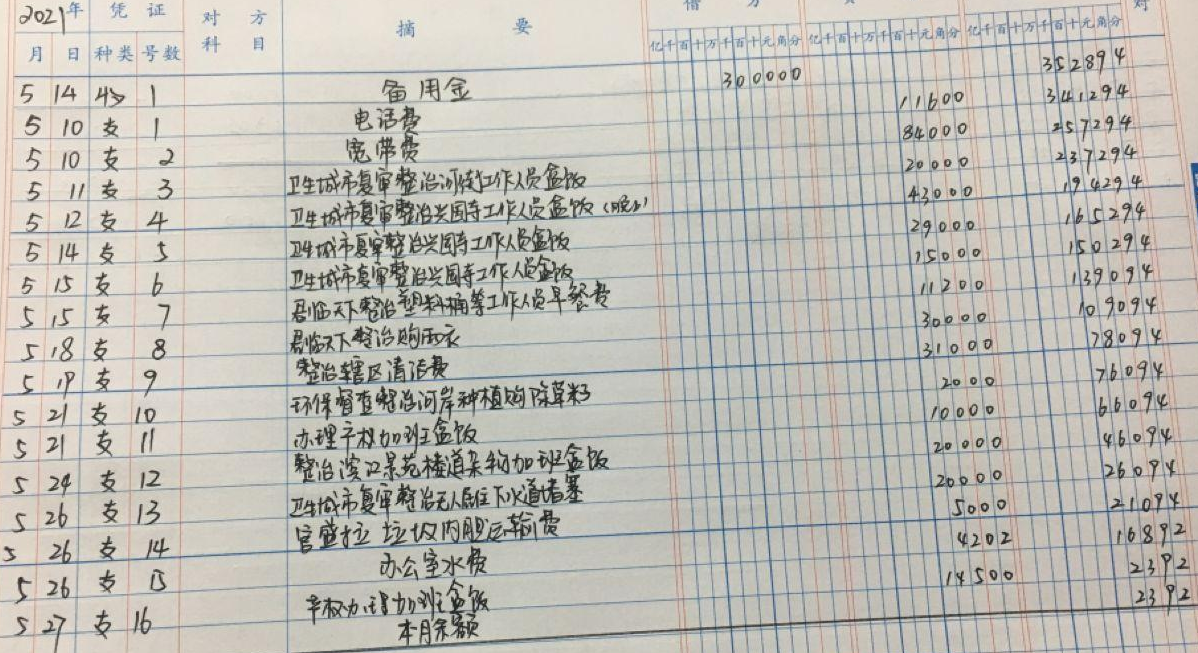 2021年 凭证 对方科目 摘要 借方 对
月 日 种类 号数 亿千百十万千百十元角分 亿千百十万千百十元角分 亿千百十万千百十元角分
5 14 收 1 备用金 300000 352894
5 10 支 1 电话费 11600 341294
5 10 支 2 宽带费 84000 257294
5 11 支 3 卫生城市复审整治河街工作人员盒饭 20000 237294
5 12 支 4 卫生城市复审整治兴国寺工作人员盒饭(晚上) 43000 194294
5 14 支 5 卫生城市复审整治兴国寺工作人员盒饭 29000 165294
5 15 支 6 卫生城市复审整治兴国寺工作人员盒饭 15000 150294
5 15 支 7 君临天下整治塑料桶等工作人员早餐费 11200 139094
5 18 支 8 君临天下整治购雨衣 30000 109094
5 19 支 9 整治辖区清洁费 31000 78094
5 21 支 10 环保督查整治河岸种植购除草 2000 76094
5 21 支 11 办理产权加班盒饭 10000 66094
5 24 支 12 整治滨江景苑楼道杂物加班盒饭 20000 46094
5 26 支 13 卫生城市复审整治无人居住下水道堵塞 20000 26094
5 26 支 14 官盛拉垃圾内胆运输费 5000 21094
5 26 支 15 办公室水费 4202 16892
5 27 支 16 产权办理加班盒饭 14500 2392
本月余额 2392